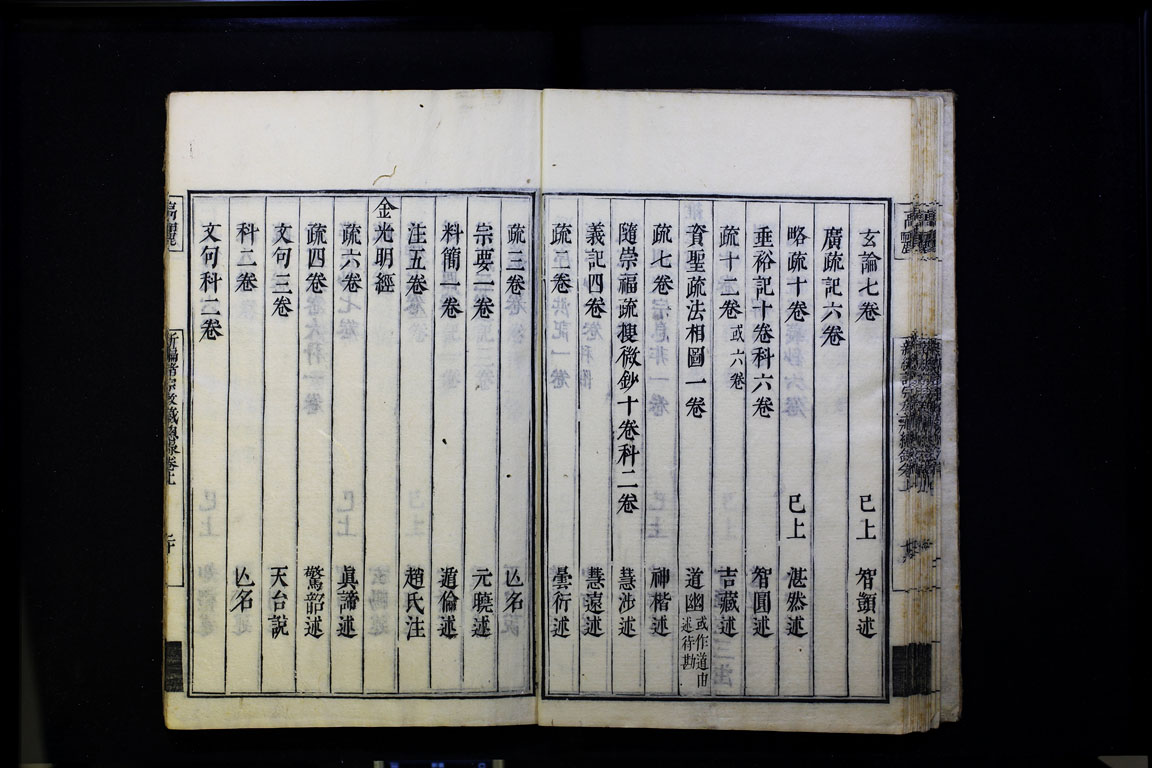 玄論七卷　已上　智顗述
廣疏記六卷
略疏十卷　已上　湛然述
垂裕記十卷科六卷　智圓述
疏十二卷或六卷　吉藏述
資聖疏法相圖一卷　道幽或作道由述待勘
疏七卷　神楷述
隨崇福疏搜微鈔十卷科二卷　慧涉述
義記四卷　慧遠述
疏二卷　曇衍述
疏三卷　亾名
宗要一卷　元曉述
料簡一卷　遁倫述
注五卷　趙氏注
金光明經
疏六卷　眞諦述
疏四卷　驚韶述
文句三卷　天台說
科二卷　亾名
文句科二卷
新編諸宗教藏總錄卷上